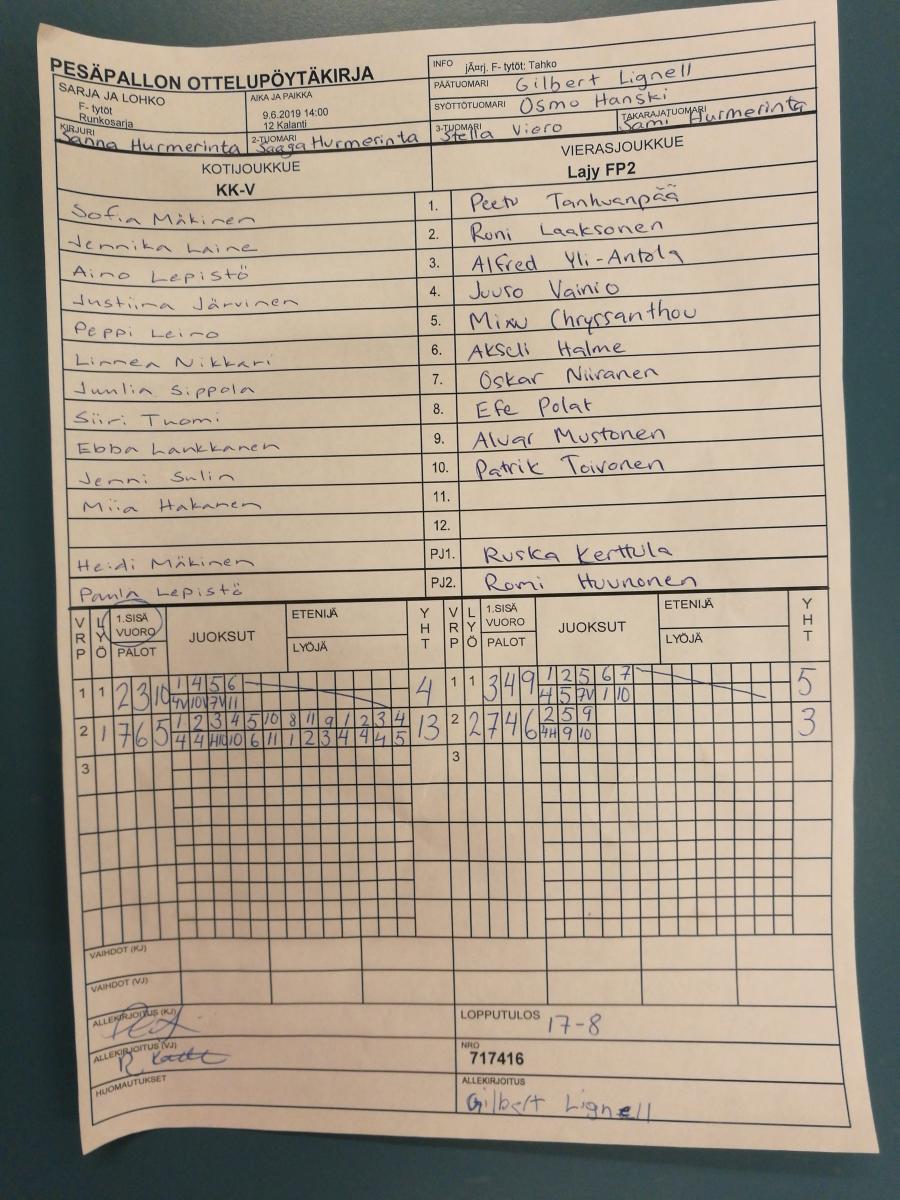 PESÄPALLON OTTELUPÖYTÄKIRJA
INFO jÃ¤rj. F- tytöt: Tahko
SARJA JA LOHKO
F- tytöt
Runkosarja
AIKA JA PAIKKA
9.6.2019 14:00
12 Kalanti
PÄÄTUOMARI Gilbert Lignell
SYÖTTÖTUOMARI Osmo Hanski
KIRJURI Sanna Hurmerinta
2-TUOMARI Saaga Hurmerinta
3-TUOMARI Stella Viero
TAKARAJATUOMARI Sami Hurmerinta
KOTIJOUKKUE
KK-V
VIERASJOUKKUE
Lajy FP2
Sofia Mäkinen 1. Peetu Tanhuanpää
Jennika Laine 2. Roni Laaksonen
Aino Lepistö 3. Alfred Yli-Antola
Justiina Järvinen 4. Juuso Vainio
Peppi Leino 5. Mixu Chryssanthou
Linnea Nikkari 6. Akseli Halme
Juulia Sippola 7. Oskar Niiranen
Siiri Tuomi 8. Efe Polat
Ebba Laukkanen 9. Alvar Mustonen
Jenni Sulin 10. Patrik Toivonen
Miia Hakanen 11.
12.
Heidi Mäkinen PJ1. Ruska Kerttula
Paula Lepistö PJ2. Romi Huunonen
VRP LYÖ 1.SISÄ VUORO PALOT JUOKSUT ETENIJÄ LYÖJÄ YHT VRP LYÖ 1.SISÄ VUORO PALOT JUOKSUT ETENIJÄ LYÖJÄ YHT
1 1 2 3 10 1 4 5 6 4 1 1 3 4 9 1 2 5 6 7 5
4V 10V 7V 11 4 5 7V 1 10
2 1 7 6 5 1 2 3 4 5 10 8 11 9 1 2 3 4 13 2 2 7 4 6 2 5 9 3
4 4 H10 10 6 11 1 2 3 4 4 4 5 4H 9 10
3 3
VAIHDOT (KJ)
VAIHDOT (VJ)
ALLEKIRJOITUS (KJ)
LOPPUTULOS 17-8
ALLEKIRJOITUS (VJ)
NRO
717416
HUOMAUTUKSET
ALLEKIRJOITUS
Gilbert Lignell